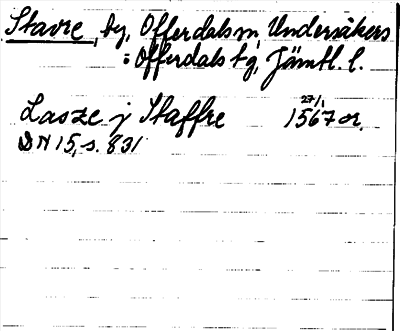 Stavre, by, Offerdals sn, Undersåkers
: Offerdals tg, Jämtl. l.
Lasze j Staffre 27/1 1567 or.
DN 15, s. 831